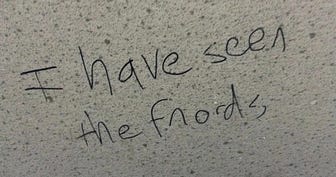 I have seen
the fnords